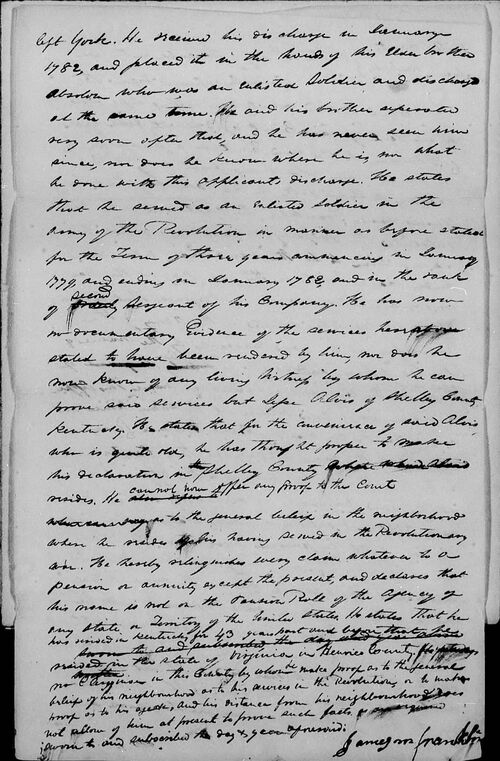 left York. He received his discharge in January
1782, and placed it in the hands of his Elder brother
Absolom who was an enlisted Soldier and discharged
at the same time. He and his brother seperated
very soon after that, and he has never seen him
since, nor does he know where he is nor what
he done with this applicants discharge. He states
that he served as an enlisted Soldier in the
army of the Revolution in manner as before stated
for the Term of three years commencing in January
1779, and ending in January 1782, and in the rank
of second Sergeant of his Company. He has now
no documentary Evidence of the services
stated to have been rendered by him, nor does he
now know of any living witness by whom he can
prove said services but Alvis of Shelby County
Kentucky. He states that for the convenience of said Alvis,
who is quite old, he has thought proper to make
his declaration in Shelby County
resides. He cannot now offer any proof to the Court
as to the general belief in the neighborhood
where he resides of his having served in the Revolutionary
war. He hereby relinquishes every claim whatever to a
pension or annuity except the present, and declares that
his name is not on the Pension Role of the Agency of
any state or Territory of the United States. He states that he
has resided in Kentucky for 43 years past and
sworn to and subscribed the day
resided in the State of Virginia in County,
no Clergyman in this County by whom he make proof as to the general
belief of his neighbourhood as to his services in the Revolution, or to make
proof as to his age, and his distance from his neighbourhood does
not allow of him at present to prove such facts
sworn to and subscribed the day & year aforesaid.
James